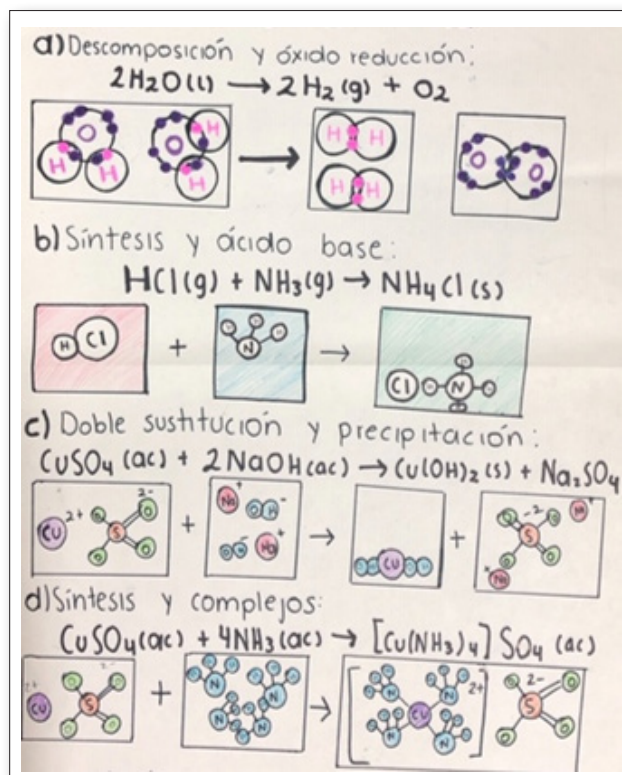 a) Descomposición y óxido reducción:
2H2O(l) → 2H2(g) + O2
O H H O H H → H H H H O O
b) Síntesis y ácido base:
HCl(g) + NH3(g) → NH4Cl(s)
H Cl + N → Cl N
c) Doble sustitución y precipitación:
CuSO4 (ac) + 2NaOH(ac) → Cu(OH)2(s) + Na2SO4
Cu 2+ S O O O O 2- + Na + O H - O H - Na + → Cu + S O O O O -2 Na + Na +
d) Síntesis y complejos:
CuSO4(ac) + 4NH3(ac) → [Cu(NH3)4] SO4 (ac)
Cu 2+ S O O O O 2- + N N N N → [ Cu N N N N ] 2+ S O O O O 2-